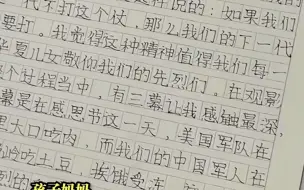 代不打这个仗,那么我们的下一代
要打。我觉得这种精神值得我们每一
华夏儿女敬仰我们的先烈们。在观影
这个过程当中,有三幕让我感触最深,
幕是在感恩书这一天,美国军队在
里大口吃肉,而我们的中国军人在
啃吃土豆 挨饿受冻
孩子妈妈